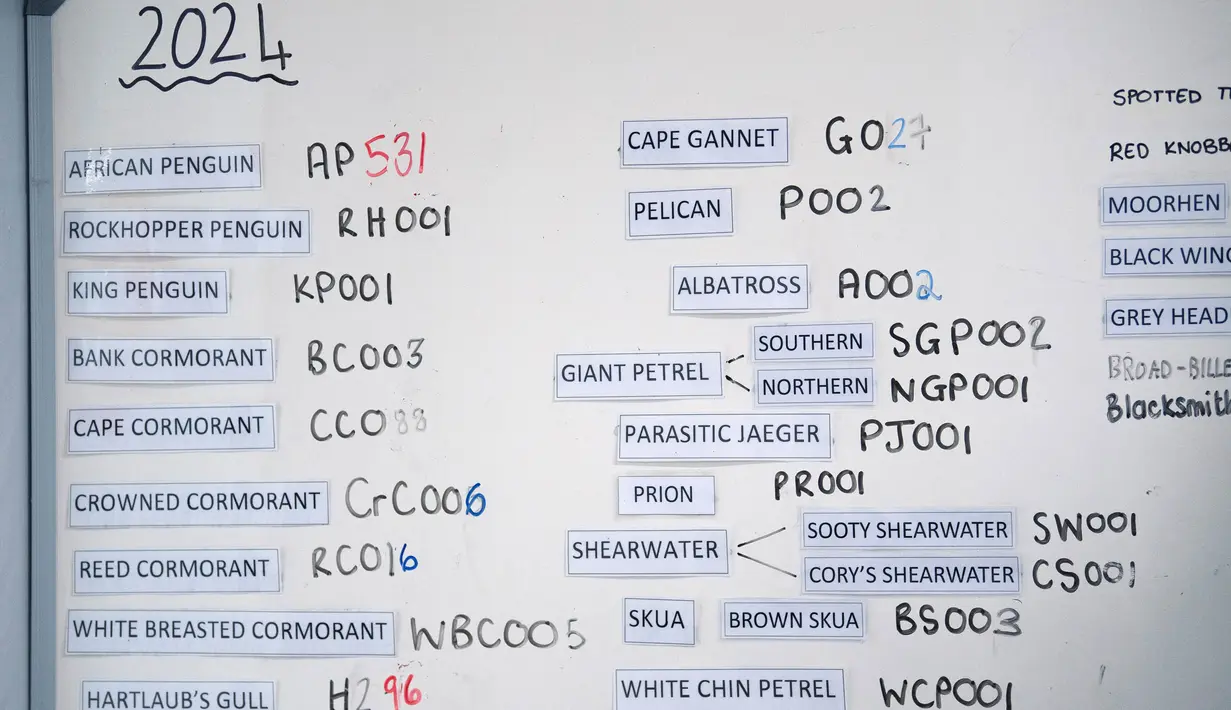 2024
AFRICAN PENGUIN AP531
ROCKHOPPER PENGUIN RH001
KING PENGUIN KP001
BANK CORMORANT BC003
CAPE CORMORANT CC088
CROWNED CORMORANT CrC006
REED CORMORANT RC016
WHITE BREASTED CORMORANT WBC005
HARTLAUB'S GULL H296
CAPE GANNET G027
PELICAN P002
ALBATROSS A002
GIANT PETREL
SOUTHERN SGP002
NORTHERN NGP001
PARASITIC JAEGER PJ001
PRION PR001
SHEARWATER
SOOTY SHEARWATER SW001
CORY'S SHEARWATER CS001
SKUA BROWN SKUA BS003
WHITE CHIN PETREL WCP001
SPOTTED
RED KNOBB
MOORHEN
BLACK WING
GREY HEAD
BROAD-BILLE
Blacksmith